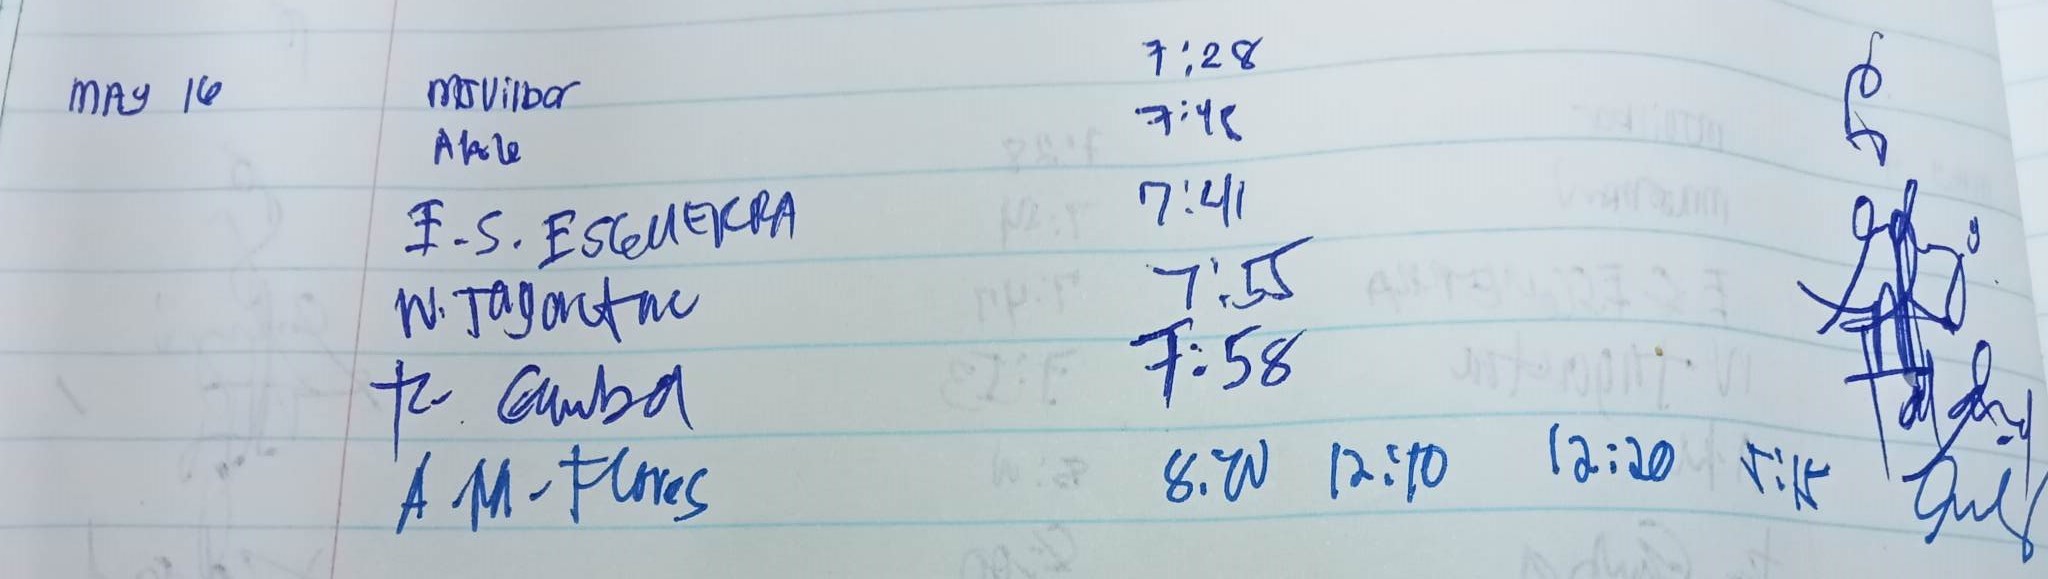 MAY 16 MJVilbar 7:28
7:48
E.S. ESGUERRA 7:41
N. Jagonctnc 7:55
Camba 7:58
A.M. Flores 8:00 12:10 12:20 5:15